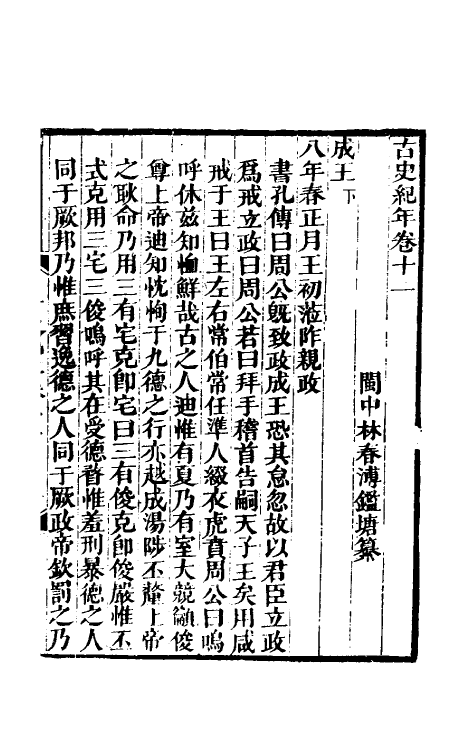 古史紀年卷十一
閩中林春溥鑑塘纂
成王下
八年春正月王初涖阼親政
書孔傳曰周公旣致政成王恐其怠忽故以君臣立政
爲戒立政曰周公若曰拜手稽首告嗣天子王矣用咸
戒于王曰王左右常伯常任準人綴衣虎賁周公曰嗚
呼休兹知恤鮮哉古之人迪惟有夏乃有室大競籲俊
尊上帝迪知忱恂于九德之行亦越成湯陟丕釐上帝
之耿命乃用三有宅克卽宅曰三有俊克卽俊嚴惟丕
式克用三宅三俊嗚呼其在受德暋惟羞刑暴德之人
同于厥邦乃惟庶習逸德之人同于厥政帝欽罰之乃